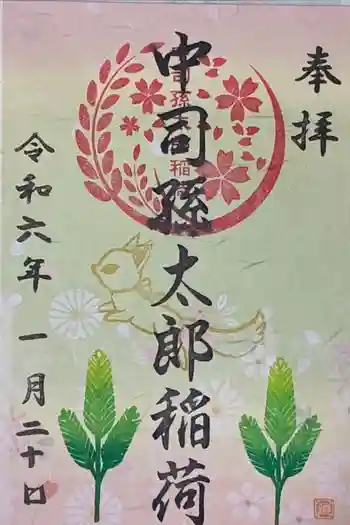 奉拝
中司孫太郎稲荷
令和六年 一月二十日